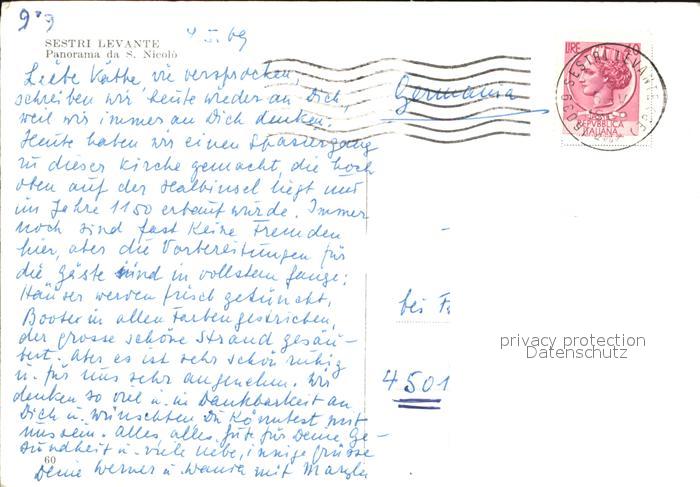 SESTRI LEVANTE
Panorama da S. Nicolò
Liebe Käthe wie versprochen,
schreiben wir heute wieder an Dich,
weil wir immer an Dich denken.
Heute haben wir einen Spaziergang
zu dieser Kirche gemacht, die hoch
oben auf der Halbinsel liegt und
im Jahre 1150 erbaut wurde. Immer
noch sind fast keine Fremden
hier, aber die Vorbereitungen für
die Gäste sind in vollstem Gange:
Häuser werden frisch getüncht,
Boote in allen Farben gestrichen,
der grosse schöne Strand gesäu-
bert. Aber es ist sehr schön ruhig
u. für uns sehr angenehm. Wir
denken so viel u. in Dankbarkeit an
Dich u. wünschten Du könntest mit
uns sein. Alles, alles Gute für Deine Ge-
sundheit u. viele liebe, innige Grüsse
Deine Werner u. mit
60
Germania
LIRE 40
REPVBBLICA
ITALIANA
SESTRI LEVANTE
bei
4501
privacy protection
Datenschutz